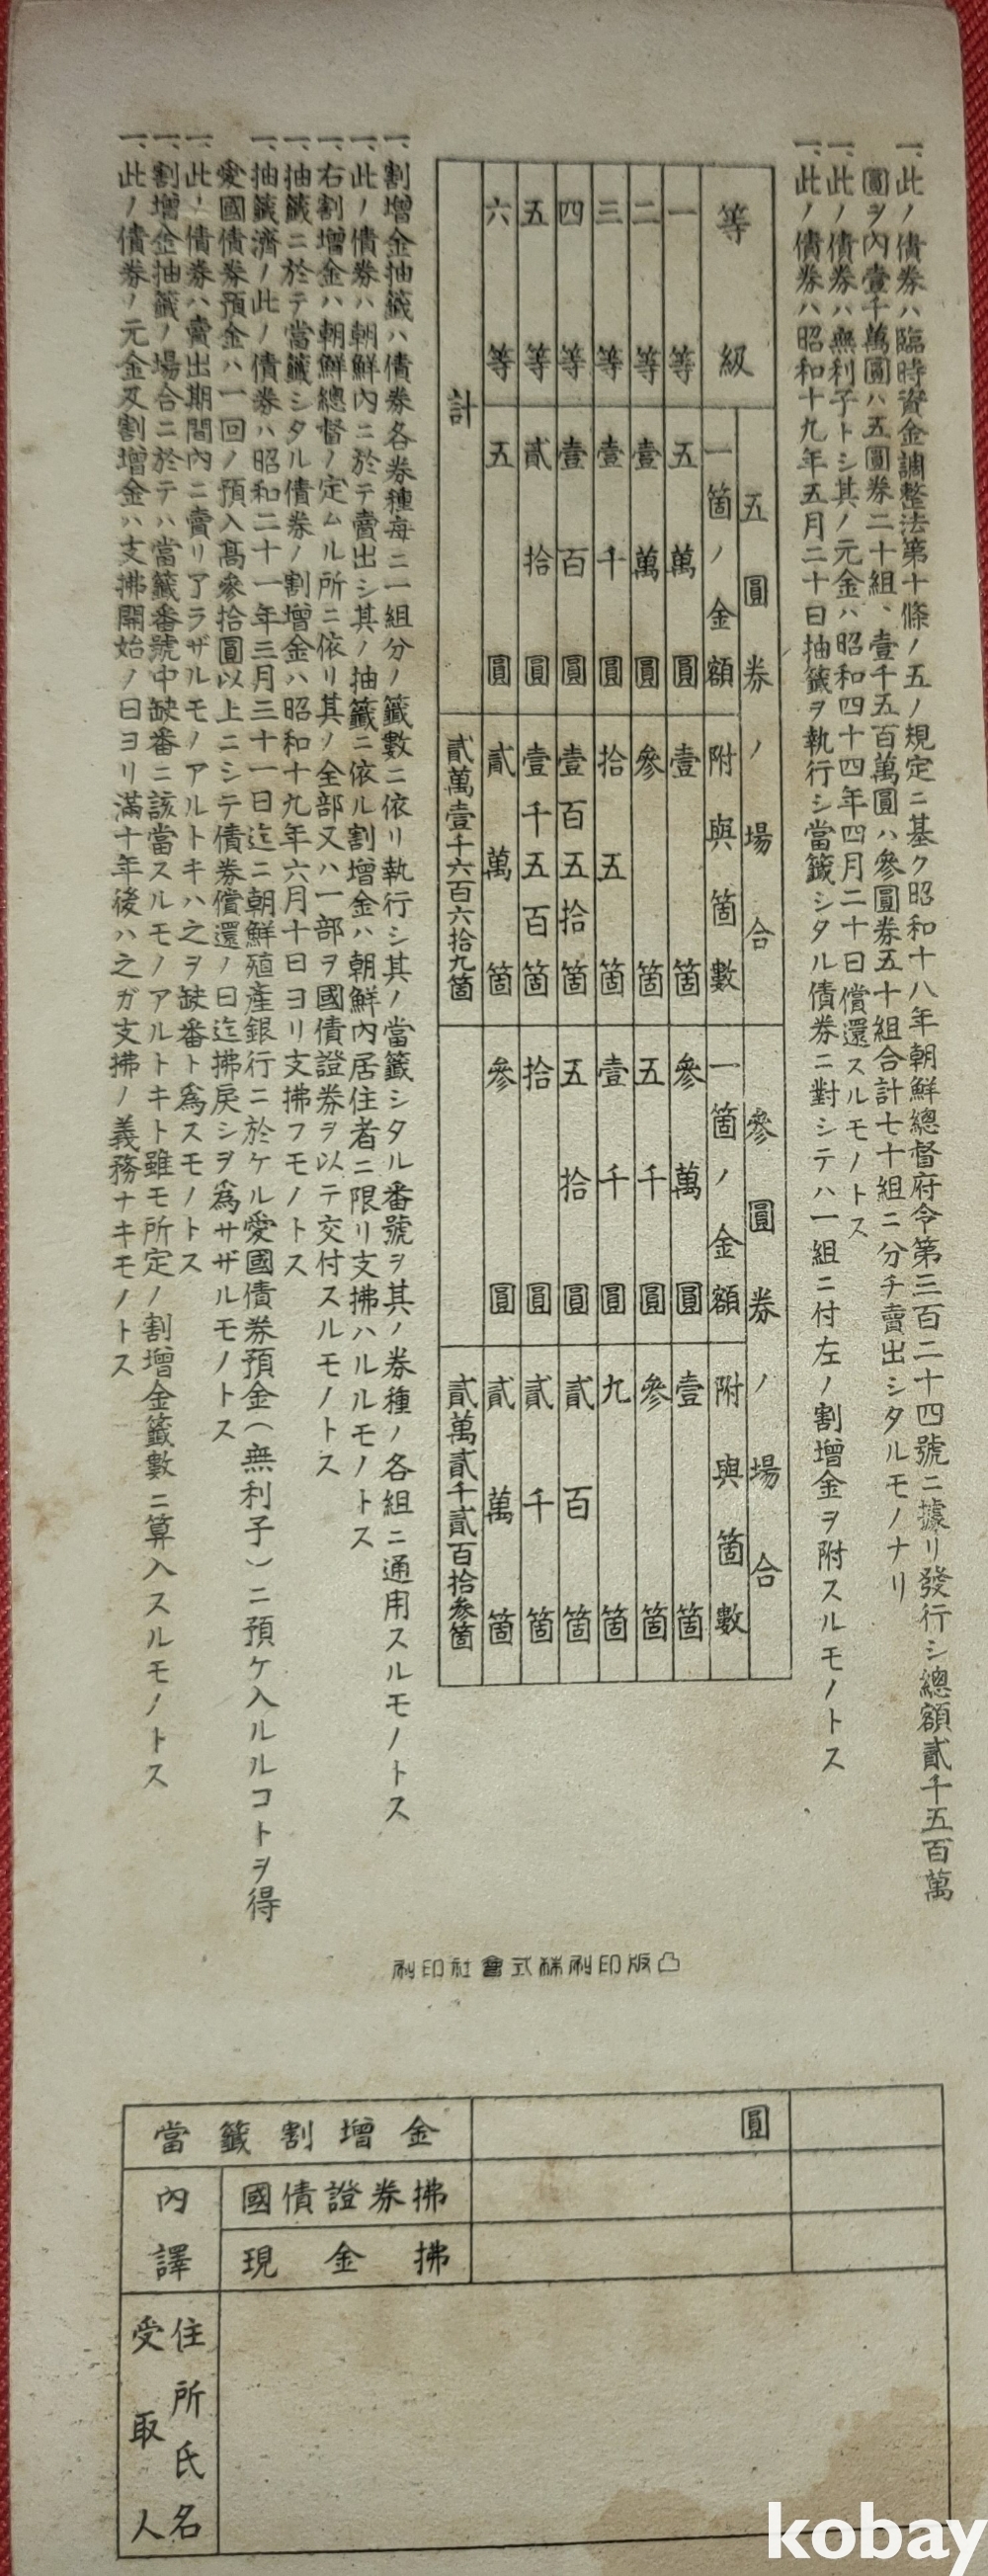 一、此ノ債券ハ臨時資金調整法第十條ノ五ノ規定ニ基ク昭和十八年朝鮮總督府令第三百二十四號ニ據リ發行シ總額貳千五百萬
圓ヲ內壹千萬圓ハ五圓券二十組、壹千五百萬圓ハ參圓券五十組合計七十組ニ分チ賣出シタルモノナリ
一、此ノ債券ハ無利子トシ其ノ元金ハ昭和四十四年四月二十日償還スルモノトス
一、此ノ債券ハ昭和十九年五月二十日抽籤ヲ執行シ當籤シタル債券ニ對シテハ一組ニ付左ノ割增金ヲ附スルモノトス
等級
五圓券ノ場合
參圓券ノ場合
一箇ノ金額
附與箇數
一箇ノ金額
附與箇數
一等 五萬圓 壹箇 參萬圓 壹箇
二等 壹萬圓 參箇 五千圓 參箇
三等 壹千圓 拾五箇 壹千圓 九箇
四等 壹百圓 壹百五拾箇 五拾圓 貳百箇
五等 貳拾圓 壹千五百箇 拾圓 貳千箇
六等 五圓 貳萬箇 參圓 貳萬箇
計 貳萬壹千六百六拾九箇 貳萬貳千貳百拾參箇
一、割增金抽籤ハ債券各券種每ニ一組分ノ籤數ニ依リ執行シ其ノ當籤シタル番號ヲ其ノ券種ノ各組ニ通用スルモノトス
一、此ノ債券ハ朝鮮內ニ於テ賣出シ其ノ抽籤ニ依ル割增金ハ朝鮮內居住者ニ限リ支拂ハルルモノトス
一、右割增金ハ朝鮮總督ノ定ムル所ニ依リ其ノ全部又ハ一部ヲ國債證券ヲ以テ交付スルモノトス
一、抽籤ニ於テ當籤シタル債券ノ割增金ハ昭和十九年六月十日ヨリ支拂フモノトス
一、抽籤濟ノ此ノ債券ハ昭和二十一年三月三十一日迄ニ朝鮮殖產銀行ニ於ケル愛國債券預金(無利子)ニ預ケ入ルルコトヲ得
愛國債券預金ハ一回ノ預入高參拾圓以上ニシテ債券償還ノ日迄拂戾シヲ爲サザルモノトス
一、此ノ債券ハ賣出期間內ニ賣リ了ラザルモノアルトキハ之ヲ缺番ト爲スモノトス
一、割增金抽籤ノ場合ニ於テハ當籤番號中缺番ニ該當スルモノアルトキト雖モ所定ノ割增金籤數ニ算入スルモノトス
一、此ノ債券ノ元金及割增金ハ支拂開始ノ日ヨリ滿十年後ハ之ガ支拂ノ義務ナキモノトス
刷印社會式株刷印版凸
當籤割增金 圓
內譯
國債證券拂
現金拂
受取人
住所氏名
kobay